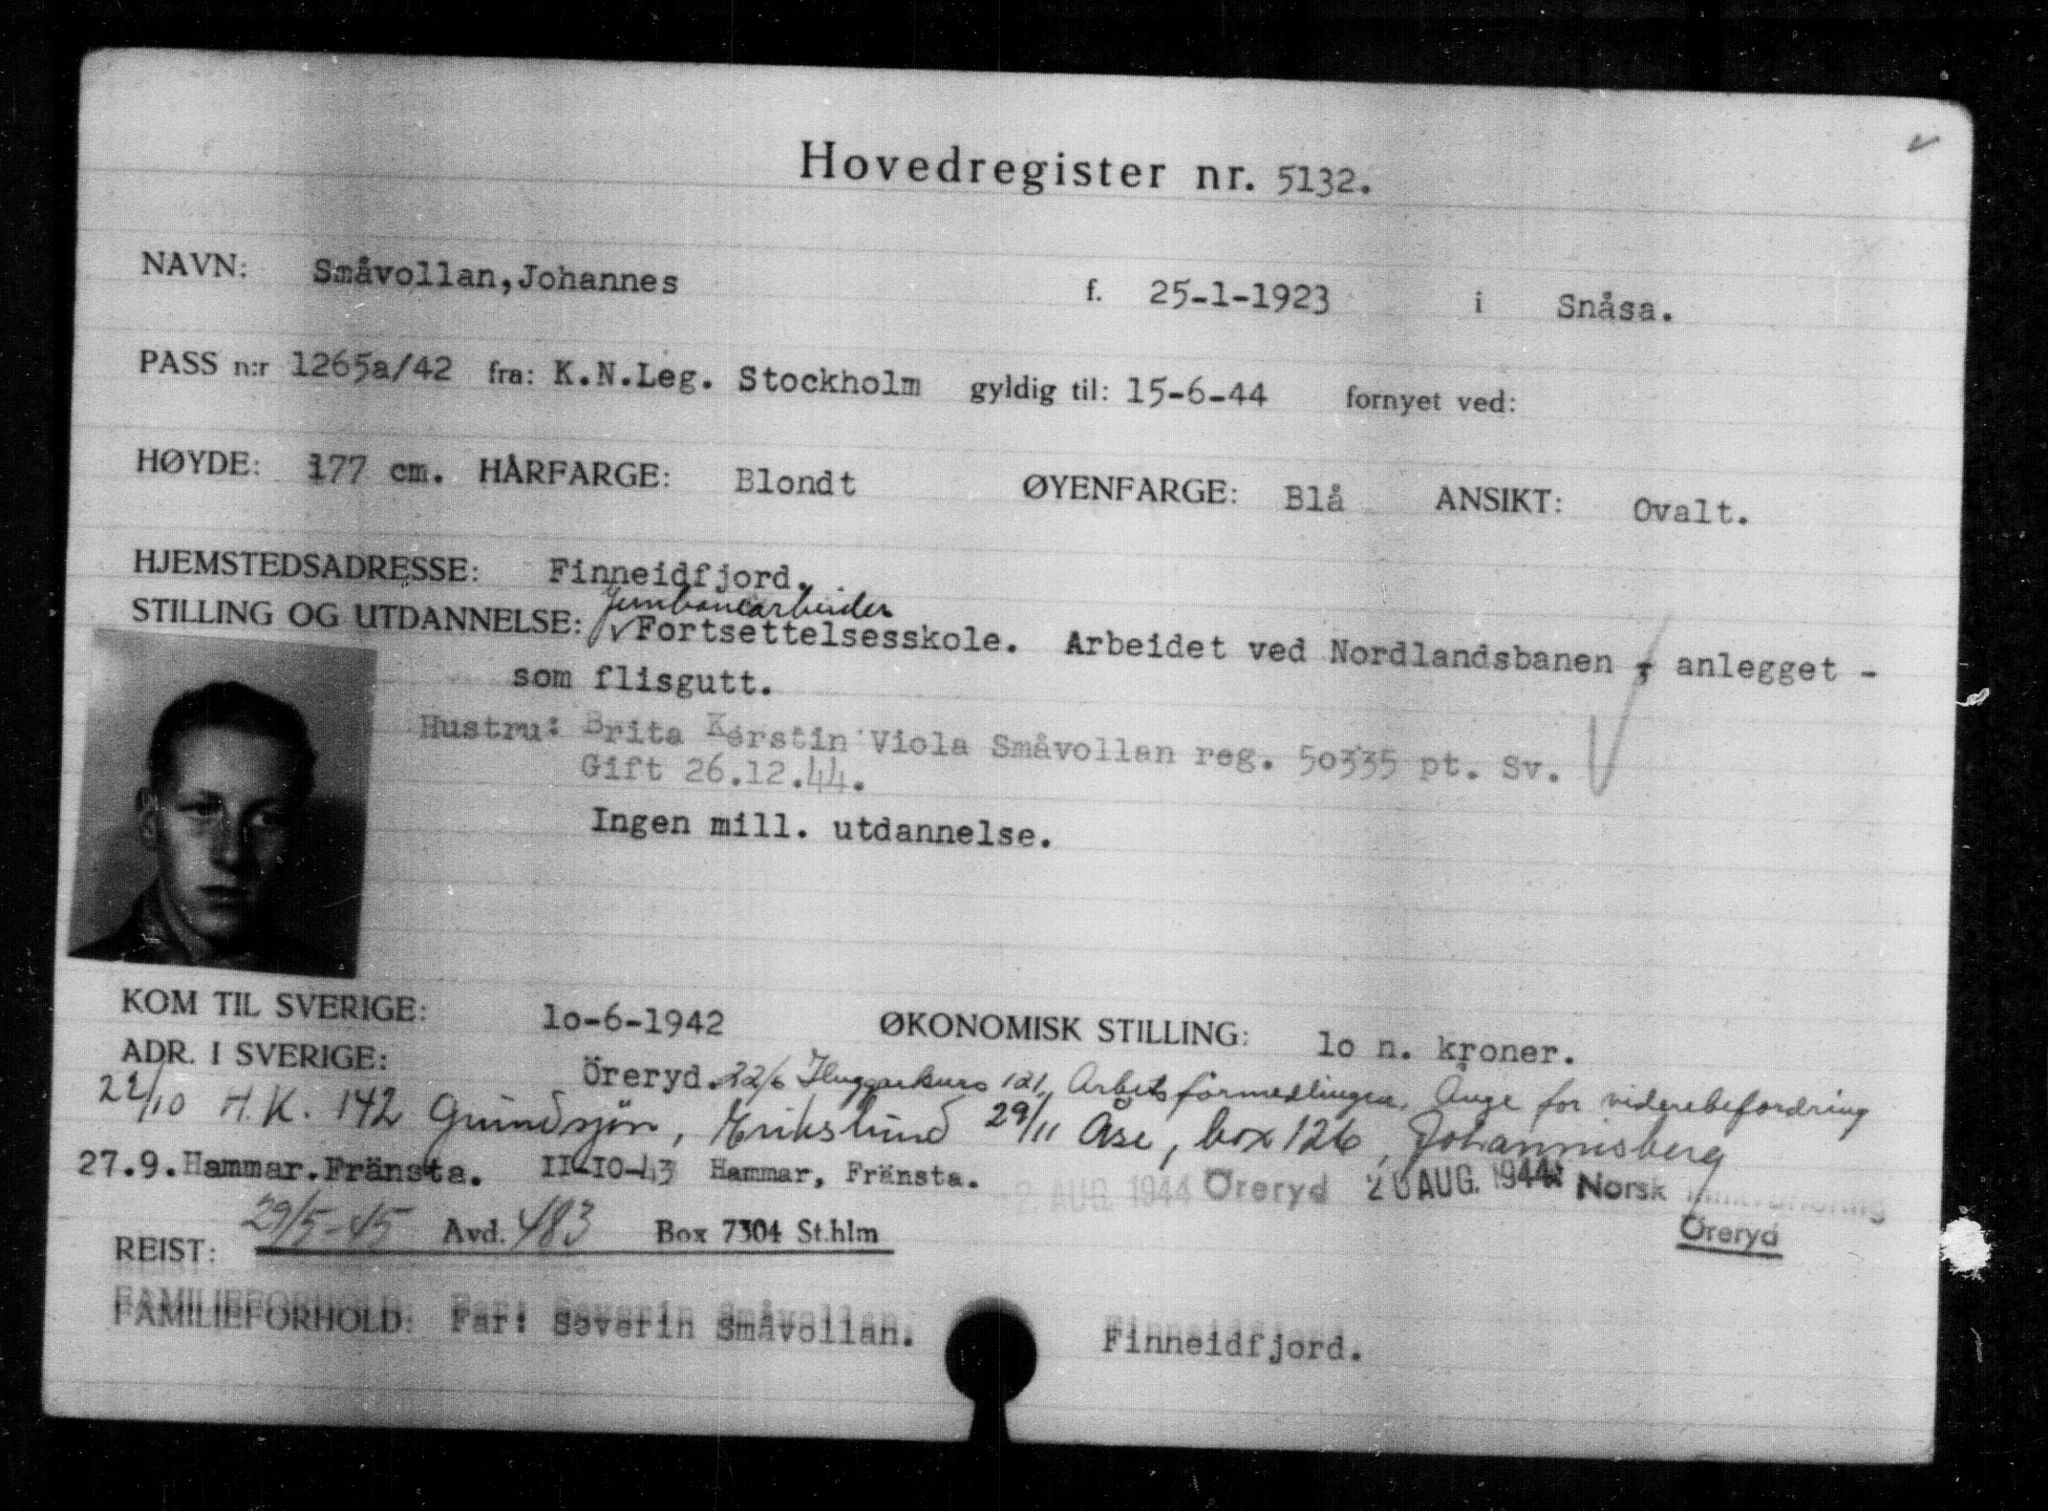 Hovedregister nr. 5132.
NAVN: Småvollan, Johannes f. 25-1-1923 i Snåsa.
PASS n:r 1265a/42 fra: K.N.Leg. Stockholm gyldig til: 15-6-44 fornyet ved:
HØYDE: 177 cm. HÅRFARGE: Blondt ØYENFARGE: Blå ANSIKT: Ovalt.
HJEMSTEDSADRESSE: Finneidfjord.
Jernbanearbeider
STILLING OG UTDANNELSE: Fortsettelsesskole. Arbeidet ved Nordlandsbanen - anlegget -
som flisgutt.
Hustru: Brita Kerstin Viola Småvollan reg. 50335 pt. Sv.
Gift 26.12.44.
Ingen mill. utdannelse.
KOM TIL SVERIGE: 10-6-1942 ØKONOMISK STILLING: 10 n. kroner.
ADR. I SVERIGE: Öreryd. 22/6 Huggarkurs 121, Arbetsförmedlingen, Ånge for viderebefordring
22/10 H.K. 142 Grundsjön, Erikslund 29/11 Åse, box 126, Johannisberg
27.9. Hammar. Fränsta. II-IO-43 Hammar, Fränsta. -2 AUG. 1944 Öreryd 26 AUG. 1944 Norsk
Öreryd
29/5-45 Avd. 483 Box 7304 St.hlm
REIST:
FAMILIEFORHOLD: Far: Severin Småvollan. Finneidfjord.